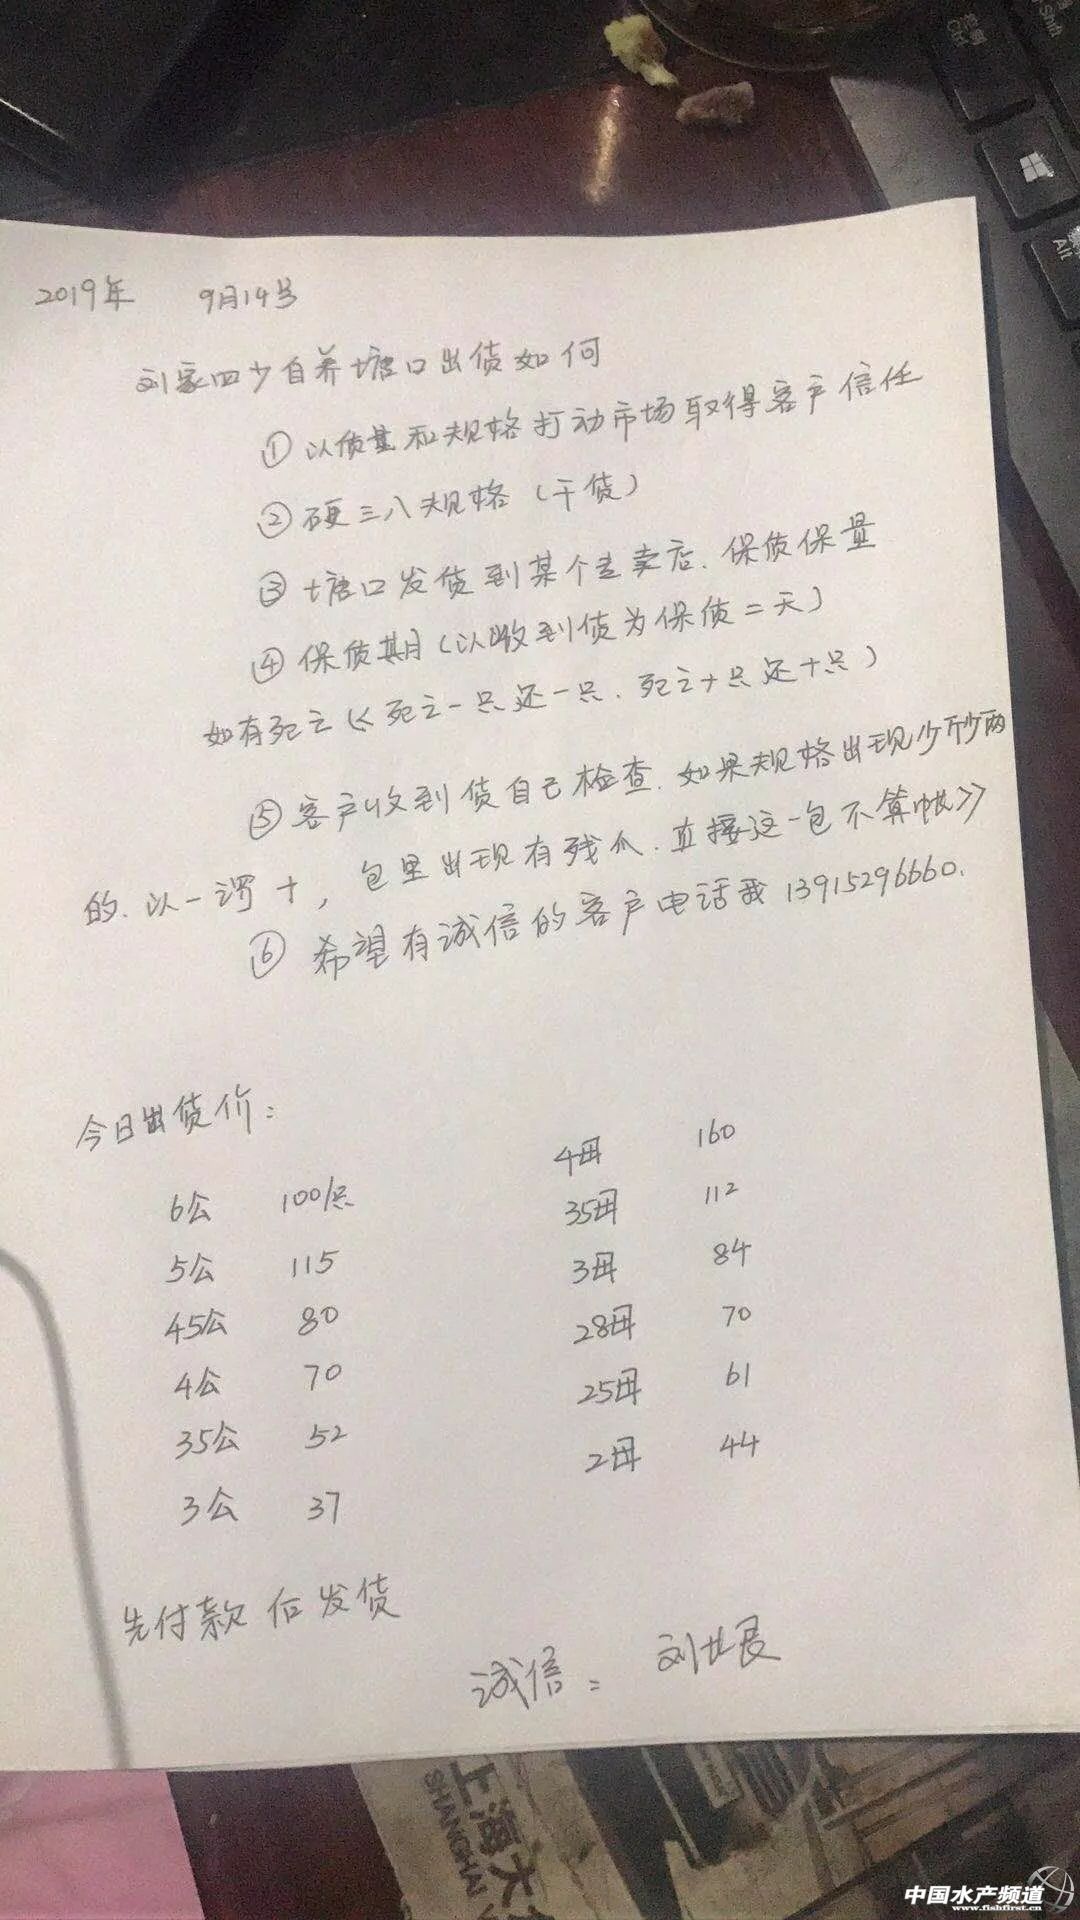 2019年 9月14号
刘家四少自养塘口出货如何
① 以质量和规格打动市场取得客户信任
② 硬三八规格（干货）
③ 塘口发货到某个专卖店.保质保量
④ 保质期（以收到货为保质二天）
如有死亡《死亡一只还一只.死亡十只还十只）
⑤ 客户收到货自己检查.如果规格出现少称少两
的.以一 十，包里出现有残爪.直接这一包不算帐》
⑥ 希望有诚信的客户电话我 13915296660.
今日出货价：
6公 100/只 4母 160
5公 115 35母 112
45公 80 3母 84
4公 70 28母 70
35公 52 25母 61
3公 37 2母 44
先付款后发货
诚信：刘世良
Ctrl
Shift
Alt
上海大
SHANGHAI
中国水产频道
www.fishfirst.cn